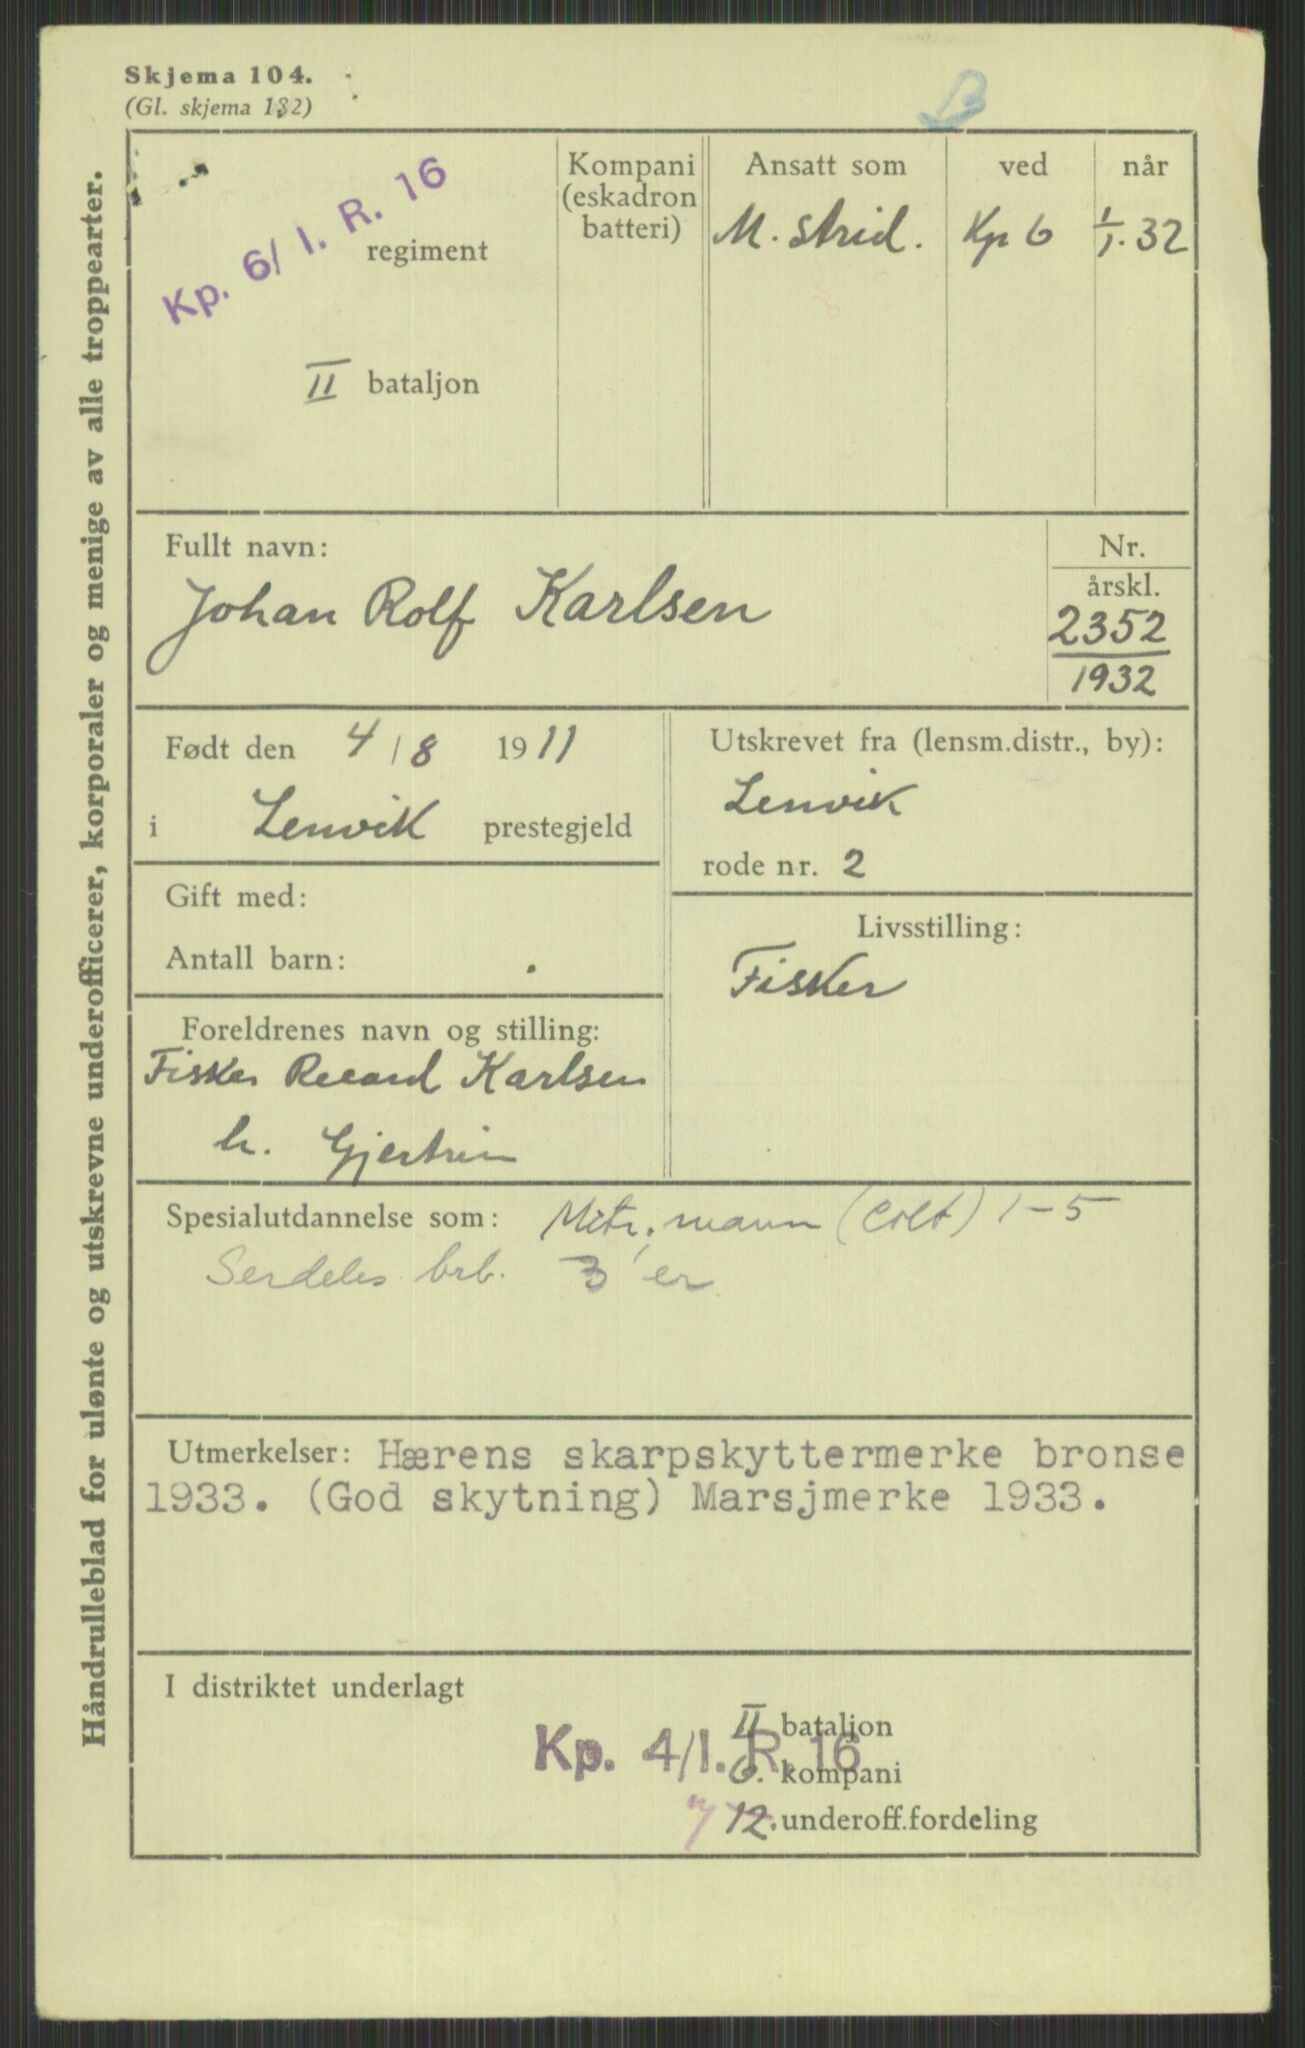 Skjema 104.
(Gl. skjema 132)
B
Håndrulleblad for ulønte og utskrevne underofficerer, korporaler og menige av alle troppearter.
Kp. 6/ I. R. 16
regiment
II bataljon
Kompani
(eskadron
batteri)
Ansatt som
M. strid.
ved
Kp 6
når
1/1. 32
Fullt navn:
Johan Rolf Karlsen
Nr.
årskl.
2352
1932
Født den 4/8 1911
i Lenvik prestegjeld
Utskrevet fra (lensm.distr., by):
Lenvik
rode nr. 2
Gift med:
Antall barn:
Livsstilling:
Fisker
Foreldrenes navn og stilling:
Fisker Recard Karlsen
h. Gjertrin
Spesialutdannelse som: Mitr. mann (Colt) 1-5
brb. 3'er
Utmerkelser: Hærens skarpskyttermerke bronse
1933. (God skytning) Marsjmerke 1933.
I distriktet underlagt
II bataljon
Kp. 4/I. R. 16
6. kompani
12. underoff.fordeling